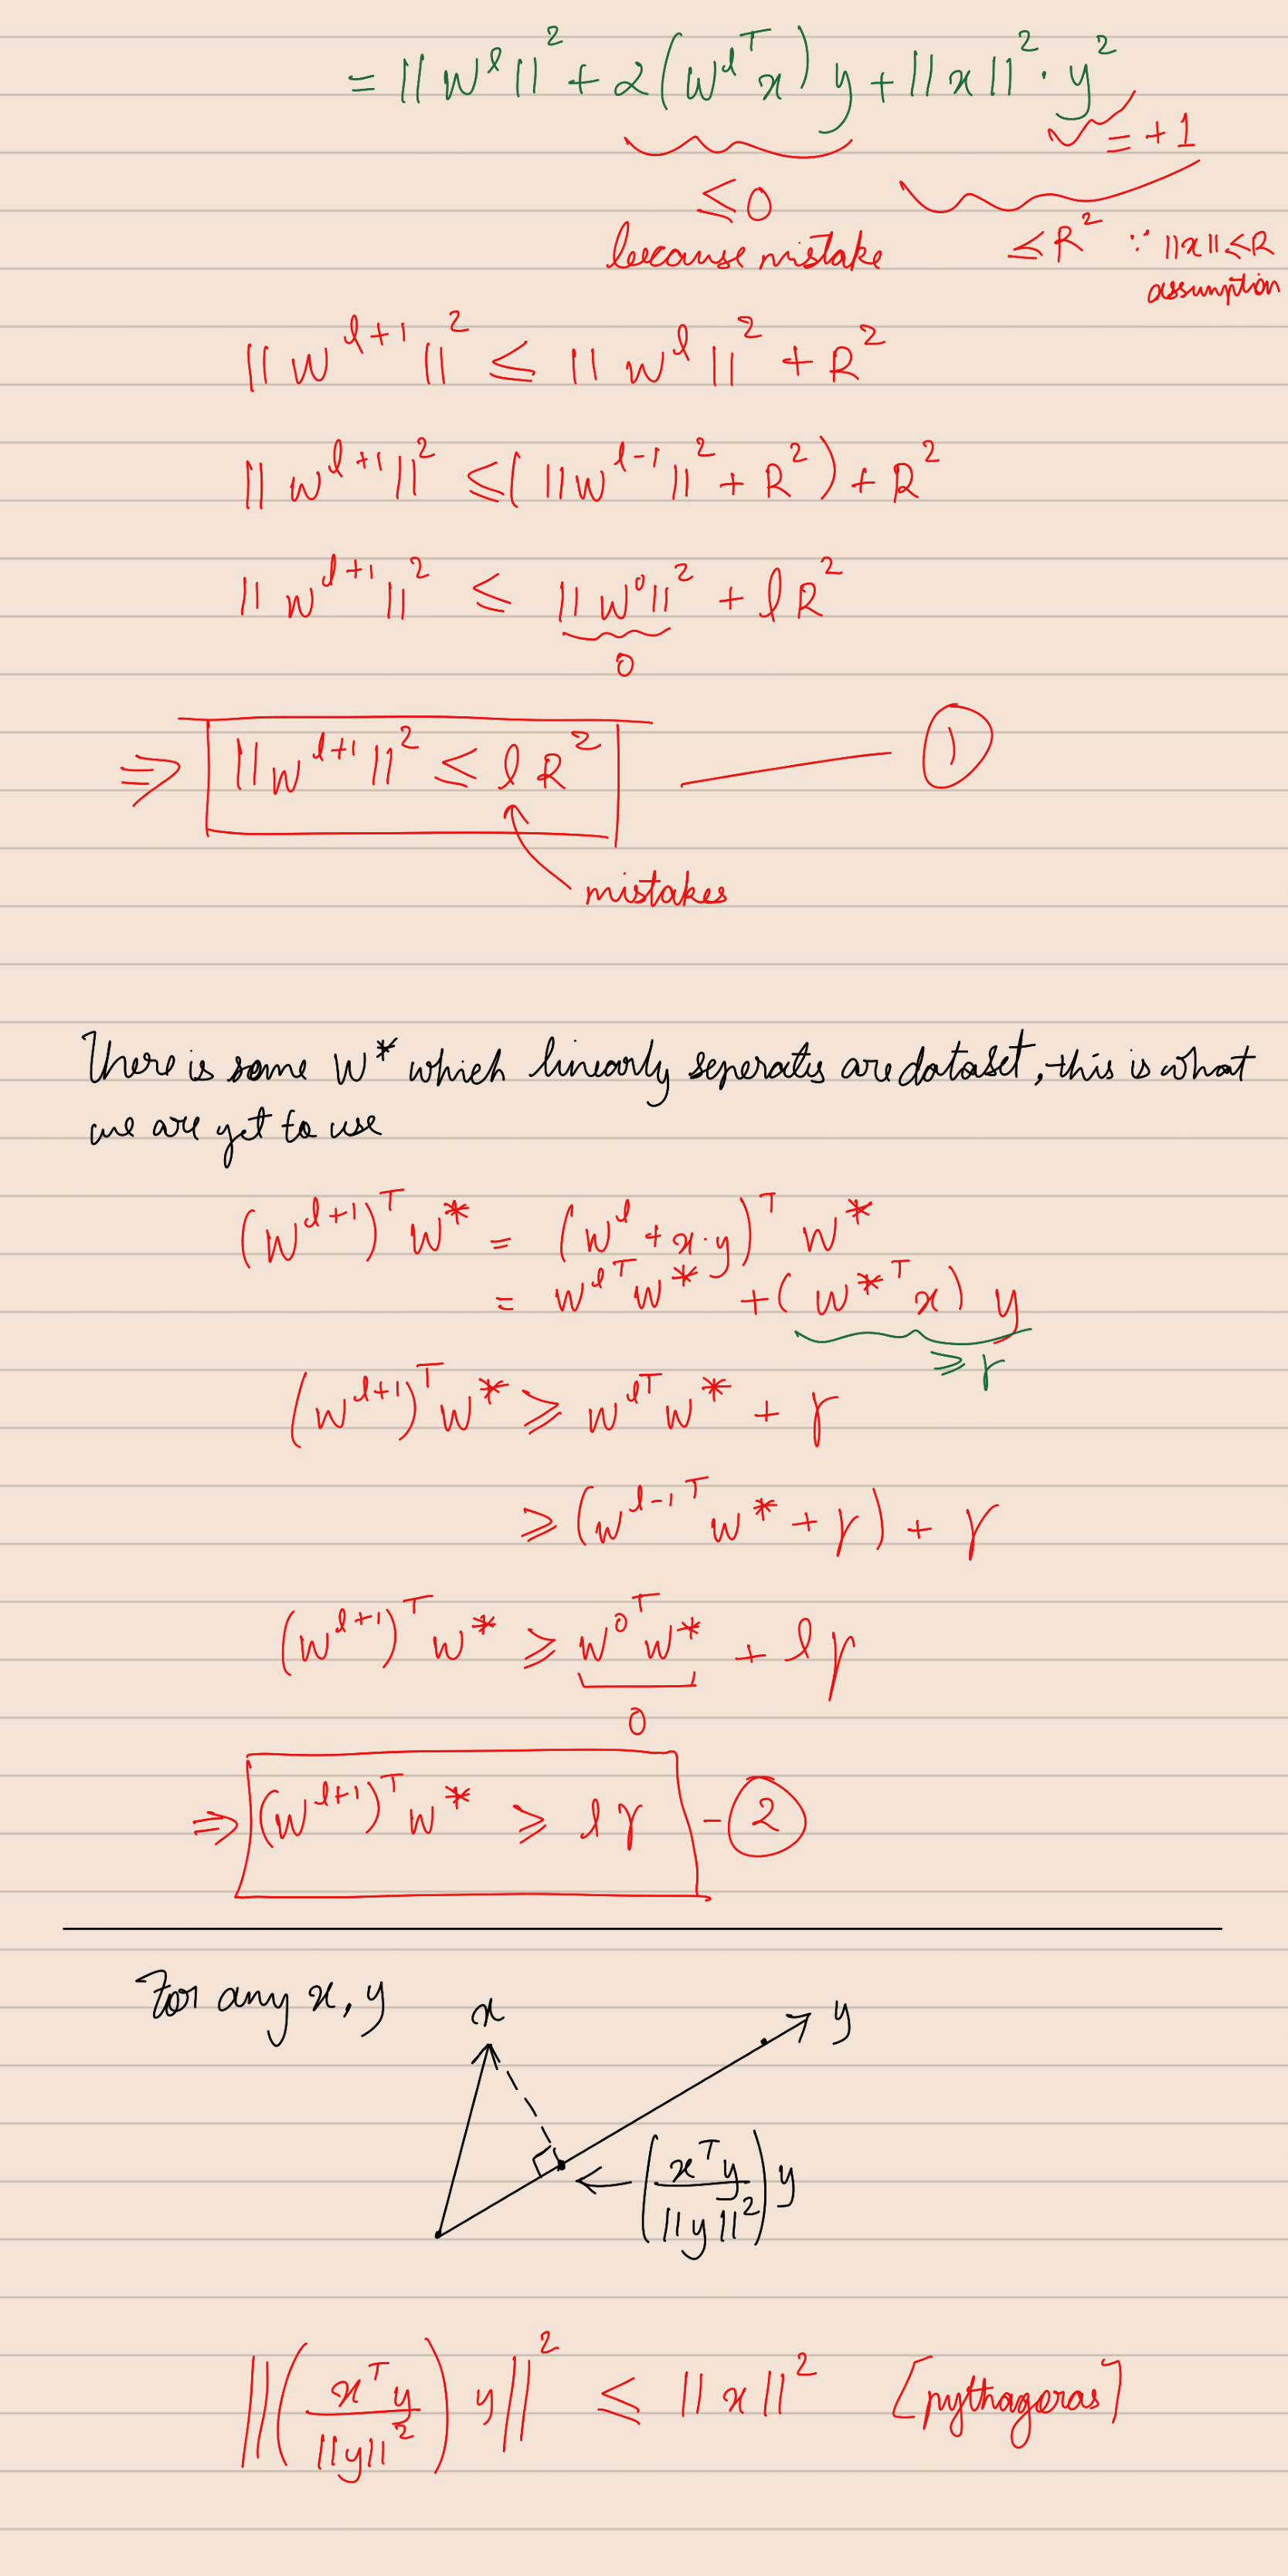 = ||W^l||² + 2(W^{l^T} x) y + ||x||² · y²
= +1
≤ 0
≤ R² ∵ ||x|| ≤ R
because mistake
assumption
||W^{l+1}||² ≤ ||W^l||² + R²
||W^{l+1}||² ≤ (||W^{l-1}||² + R²) + R²
||W^{l+1}||² ≤ ||W⁰||² + l R²
0
⇒ ||W^{l+1}||² ≤ l R² — ①
mistakes
There is some W* which linearly seperates are dataset, this is what
we are yet to use
(W^{l+1})^T W* = (W^l + x·y)^T W*
= W^{l^T} W* + (W*^T x) y
≥ γ
(W^{l+1})^T W* ≥ W^{l^T} W* + γ
≥ (W^{l-1^T} W* + γ) + γ
(W^{l+1})^T W* ≥ W^{0^T} W* + l γ
0
⇒ (W^{l+1})^T W* ≥ l γ - ②
For any x, y
x
y
← (x^T y / ||y||²) y
||(x^T y / ||y||²) y||² ≤ ||x||² [pythagoras]